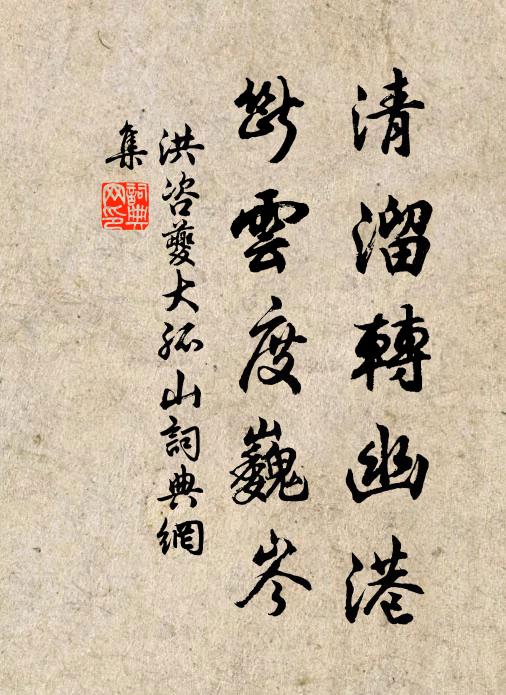 清溜轉幽港
斷雲度巍岑
洪咨夔大孤山詞典網
集
詞典網印